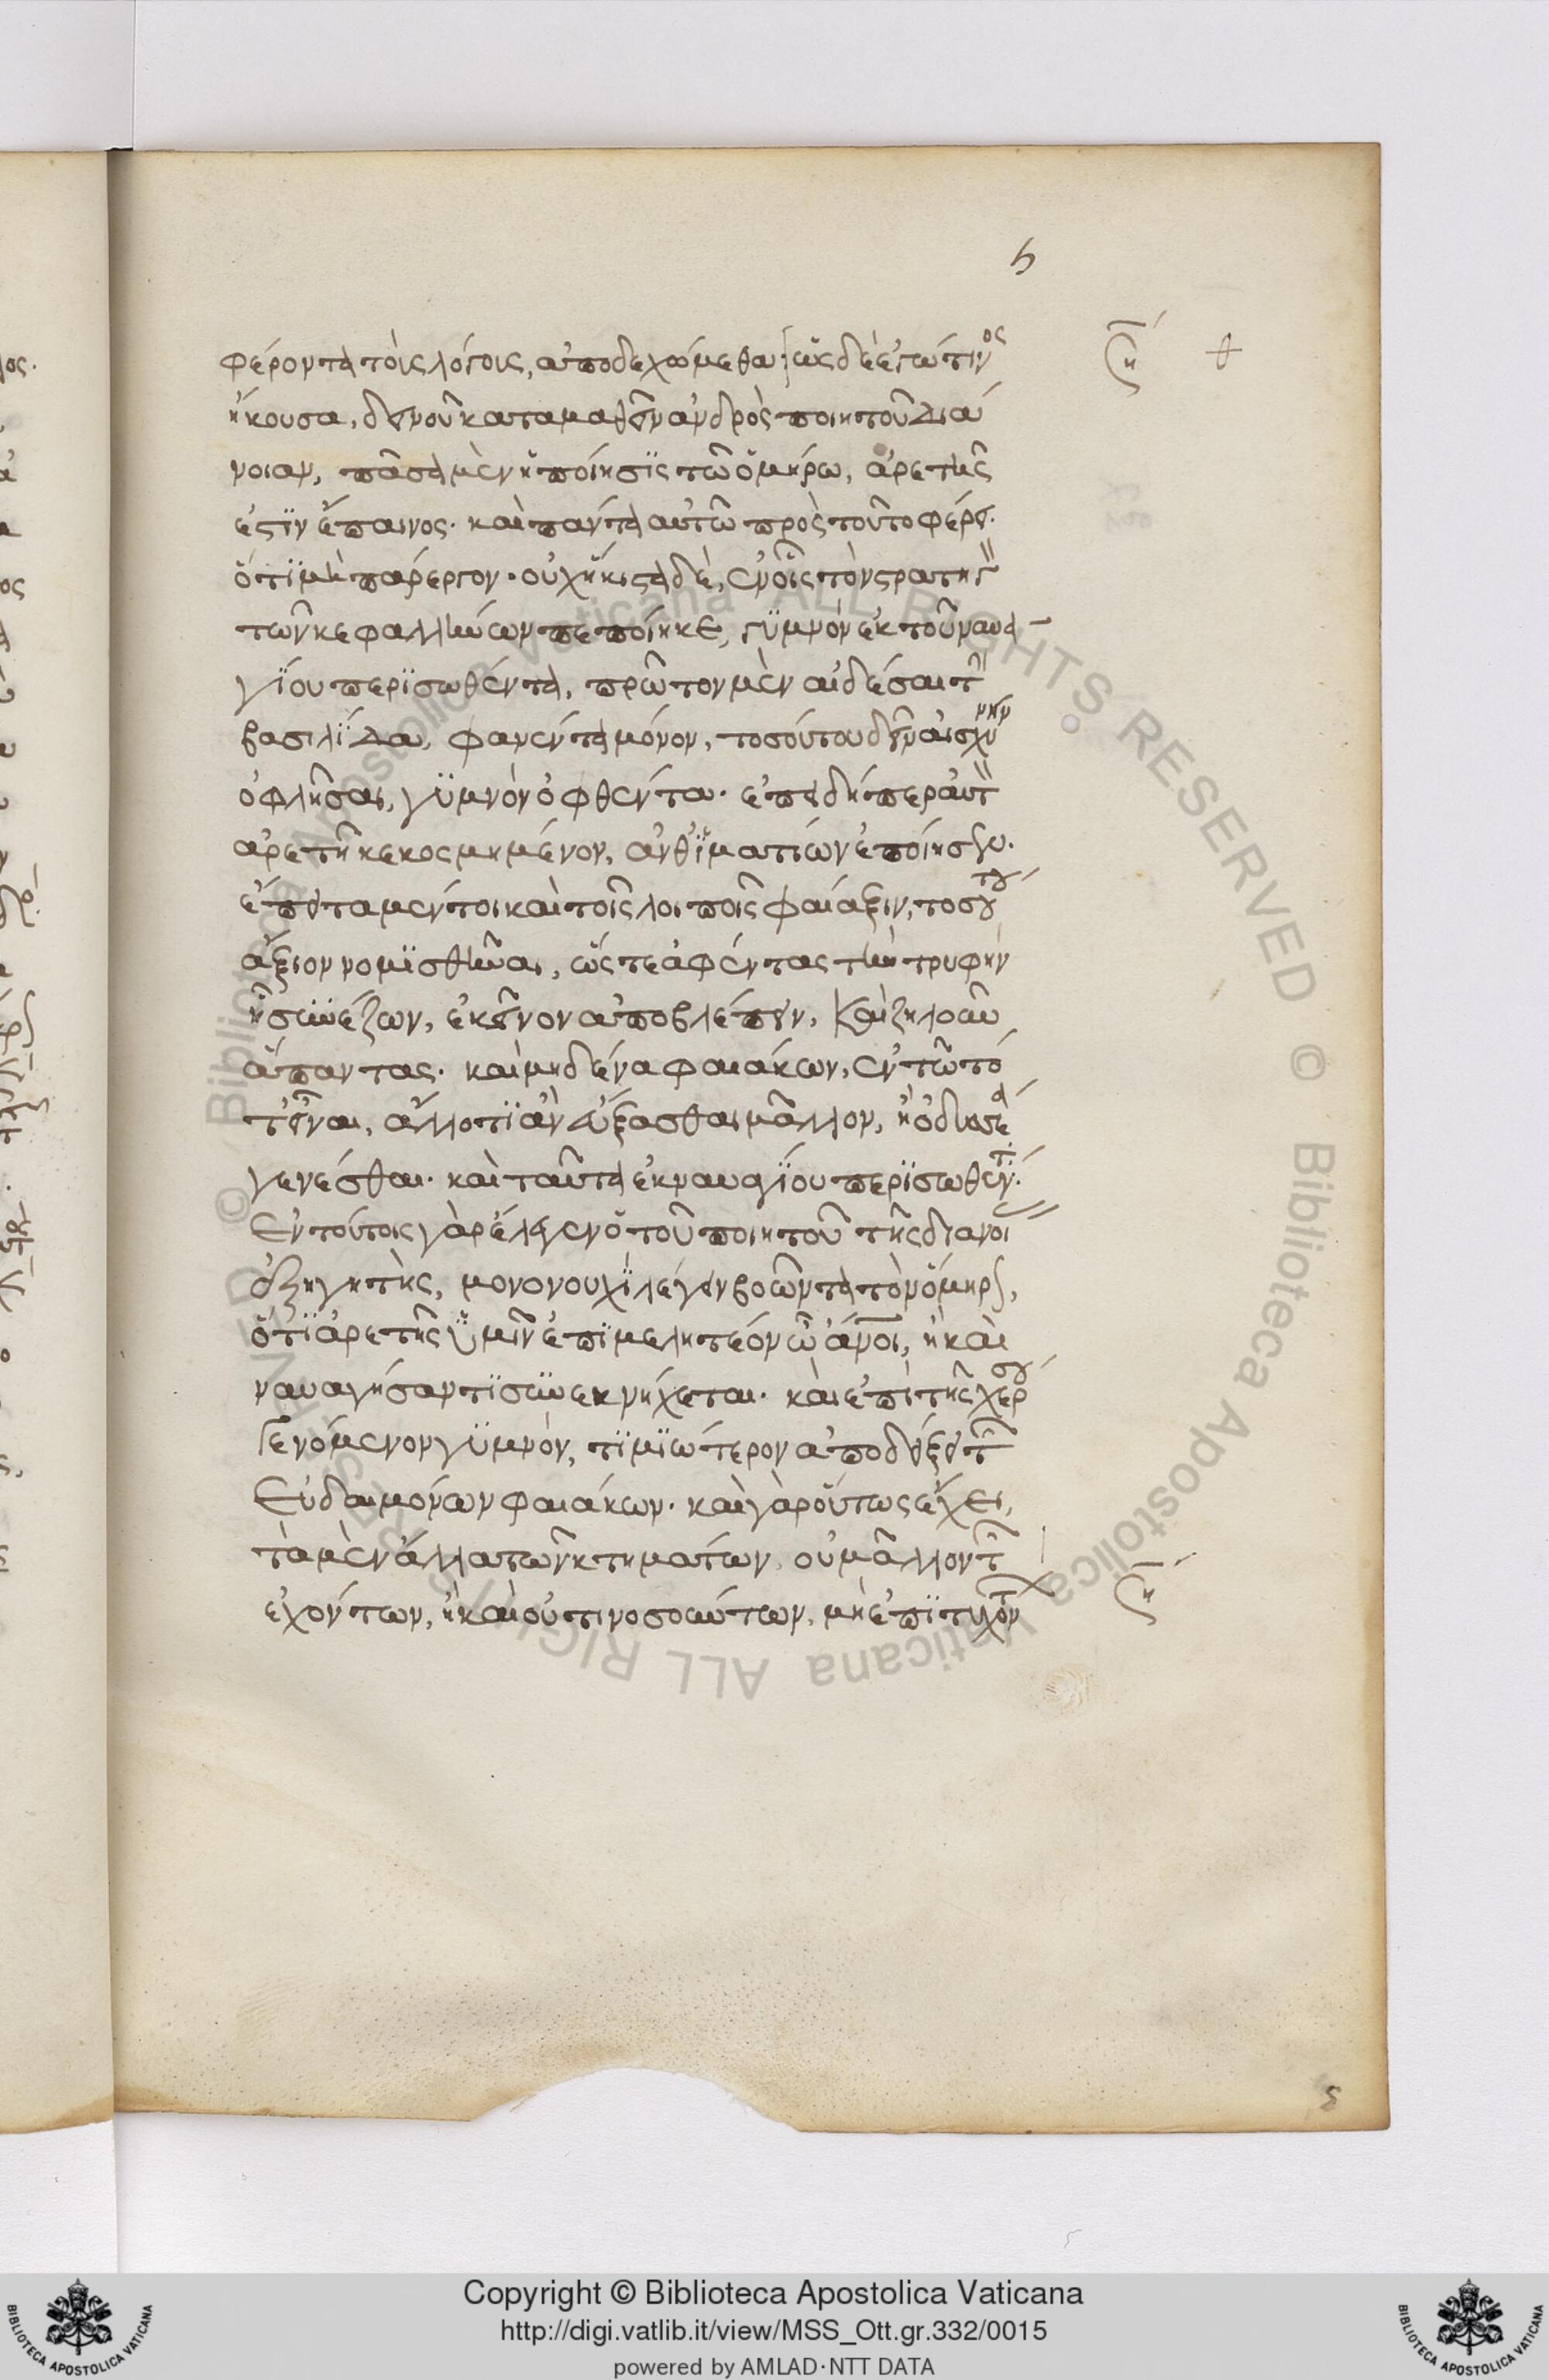 5
φέροντα τοῖς λόγοις, ἀποδεχώμεθα· ὡς δὲ ἐγώ τινος
ἤκουσα, δεινοῦ καταμαθεῖν ἀνδρὸς ποιητοῦ διά
νοιαν, πᾶσα μὲν ἡ ποίησϊς τῶ ὁμήρω, ἀρετῆς
ἐστϊν ἔπαινος· καὶ πάντα αὐτῶ πρὸς τοῦτο φέρει.
ὅτϊ μὴ πάρεργον· οὐχ ἥκιστα δὲ, ἐν οἷς τὸν στρατηγ
τῶν κεφαλλήνων πεποίηκε, γϋμνὸν ἐκ τοῦ ναυα
γΐου περϊσωθέντα, πρῶτον μὲν αἰδέσαι τ
βασιλΐδα, φανέντα μόνον, τοσούτου δεῖν αἰσχύνην
ὀφλῆσαι, γϋμνὸν ὀφθέντα· ἐπειδήπερ αὐτ
ἀρετῆ κεκοσμημένον, ἀνθ' ἱματίων ἐποίησεν.
ἔπειτα μέντοι καὶ τοῖς λοιποῖς φαίαξιν, τοσούτου
ἄξιον νομϊσθῆναι, ὥστε ἀφέντας τὴν τρυφὴν
ἧ συνέζων, ἐκεῖνον ἀποβλέπειν, καὶ ζηλοῦν
ἅπαντας· καὶ μηδένα φαιάκων, ἐν τῶ τό
τε εἶναι, ἄλλο τϊ ἂν εὔξασθαι μᾶλλον, ἢ ὀδυσσέα
γενέσθαι· καὶ ταῦτα ἐκ ναυαγΐου περϊσωθέντ.
Ἐν τούτοις γὰρ ἔλεγεν ὁ τοῦ ποιητοῦ τῆς διανοί
ἐξηγητὴς, μονονουχὶ λέγειν βοῶντα τὸν ὅμηρ,
ὅτϊ ἀρετῆς ὑμῖν ἐπϊμελητέον ὦ ἄνοι, ἣ καὶ
ναυαγήσαντϊ συνεκνήχεται· καὶ ἐπὶ τῆς χέρσου
γενόμενον γϋμνὸν, τϊμϊώτερον ἀποδείξει τ
εὐδαιμόνων φαιάκων· καὶ γὰρ οὕτως ἔχει,
τὰ μὲν ἄλλα τῶν κτημάτων, οὐ μᾶλλον τ
ἐχόντων, ἢ καὶ οὑτινοσοῦν τῶν, μὴ ἐπϊτυχόντ
Copyright © Biblioteca Apostolica Vaticana
http://digi.vatlib.it/view/MSS_Ott.gr.332/0015
powered by AMLAD·NTT DATA